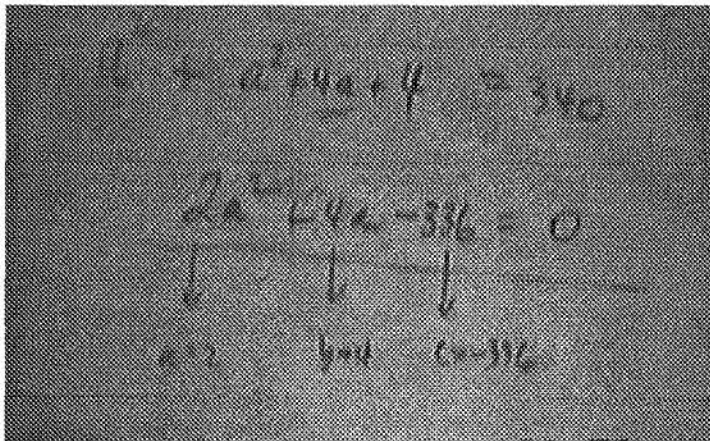 a² + a² + 4a + 4 = 340
2a² + 4a - 336 = 0
a=2 b=4 c=-336